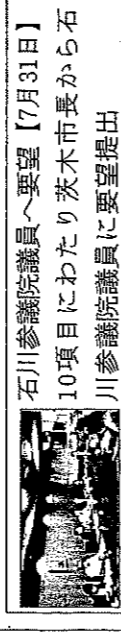 石川参議院議員へ要望【7月31日】
10項目にわたり茨木市長から石
川参議院議員に要望提出